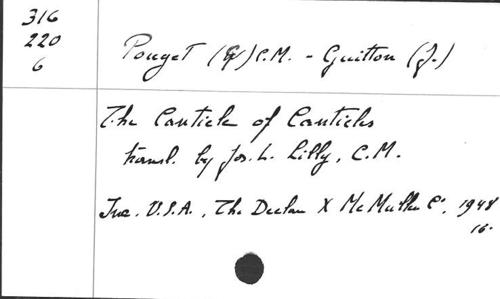 316
220
6
Pouget (G) C.M. - Guitton (J.)
The Canticle of Canticles
transl. by Jos. L. Lilly, C.M.
U.S.A., The Declan X McMullen Cº, 1948
16.